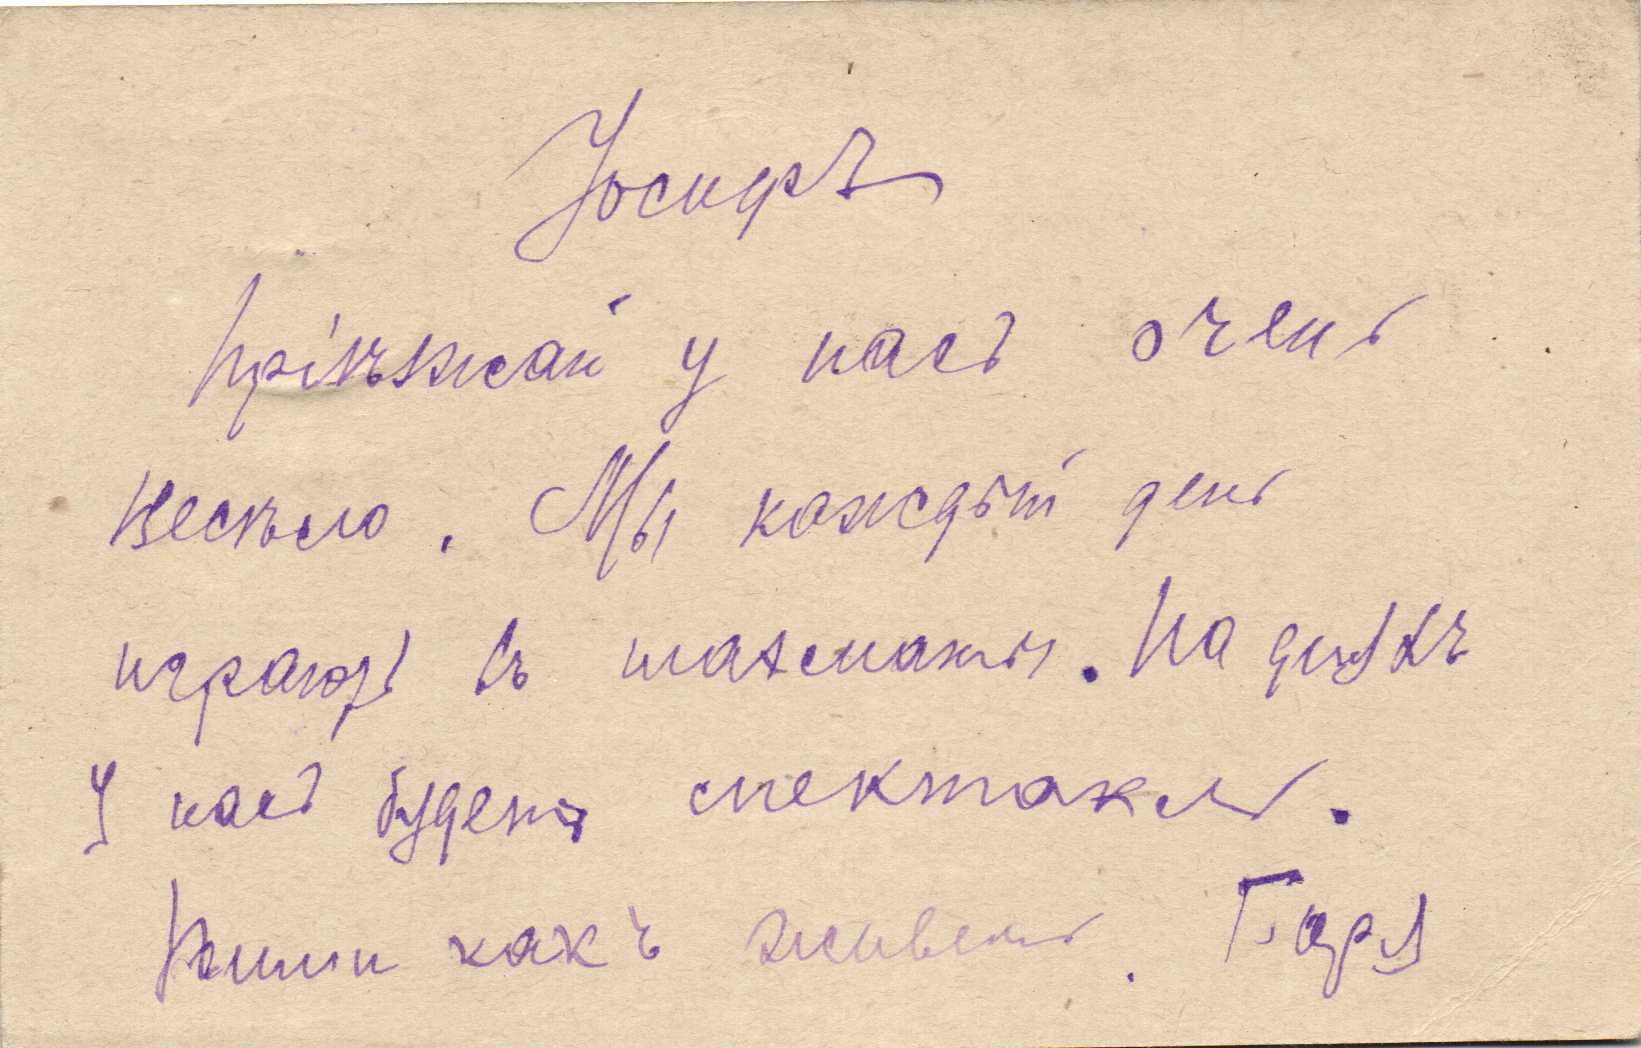 Іосифъ
Пріѣзжай у насъ очень
весѣло. Мы каждый день
играютъ въ шахматы. На дняхъ
у насъ будетъ спектакль.
Пиши какъ живешь. Боря